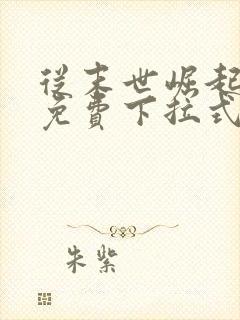 从末世崛起
免费下拉式
朱紫